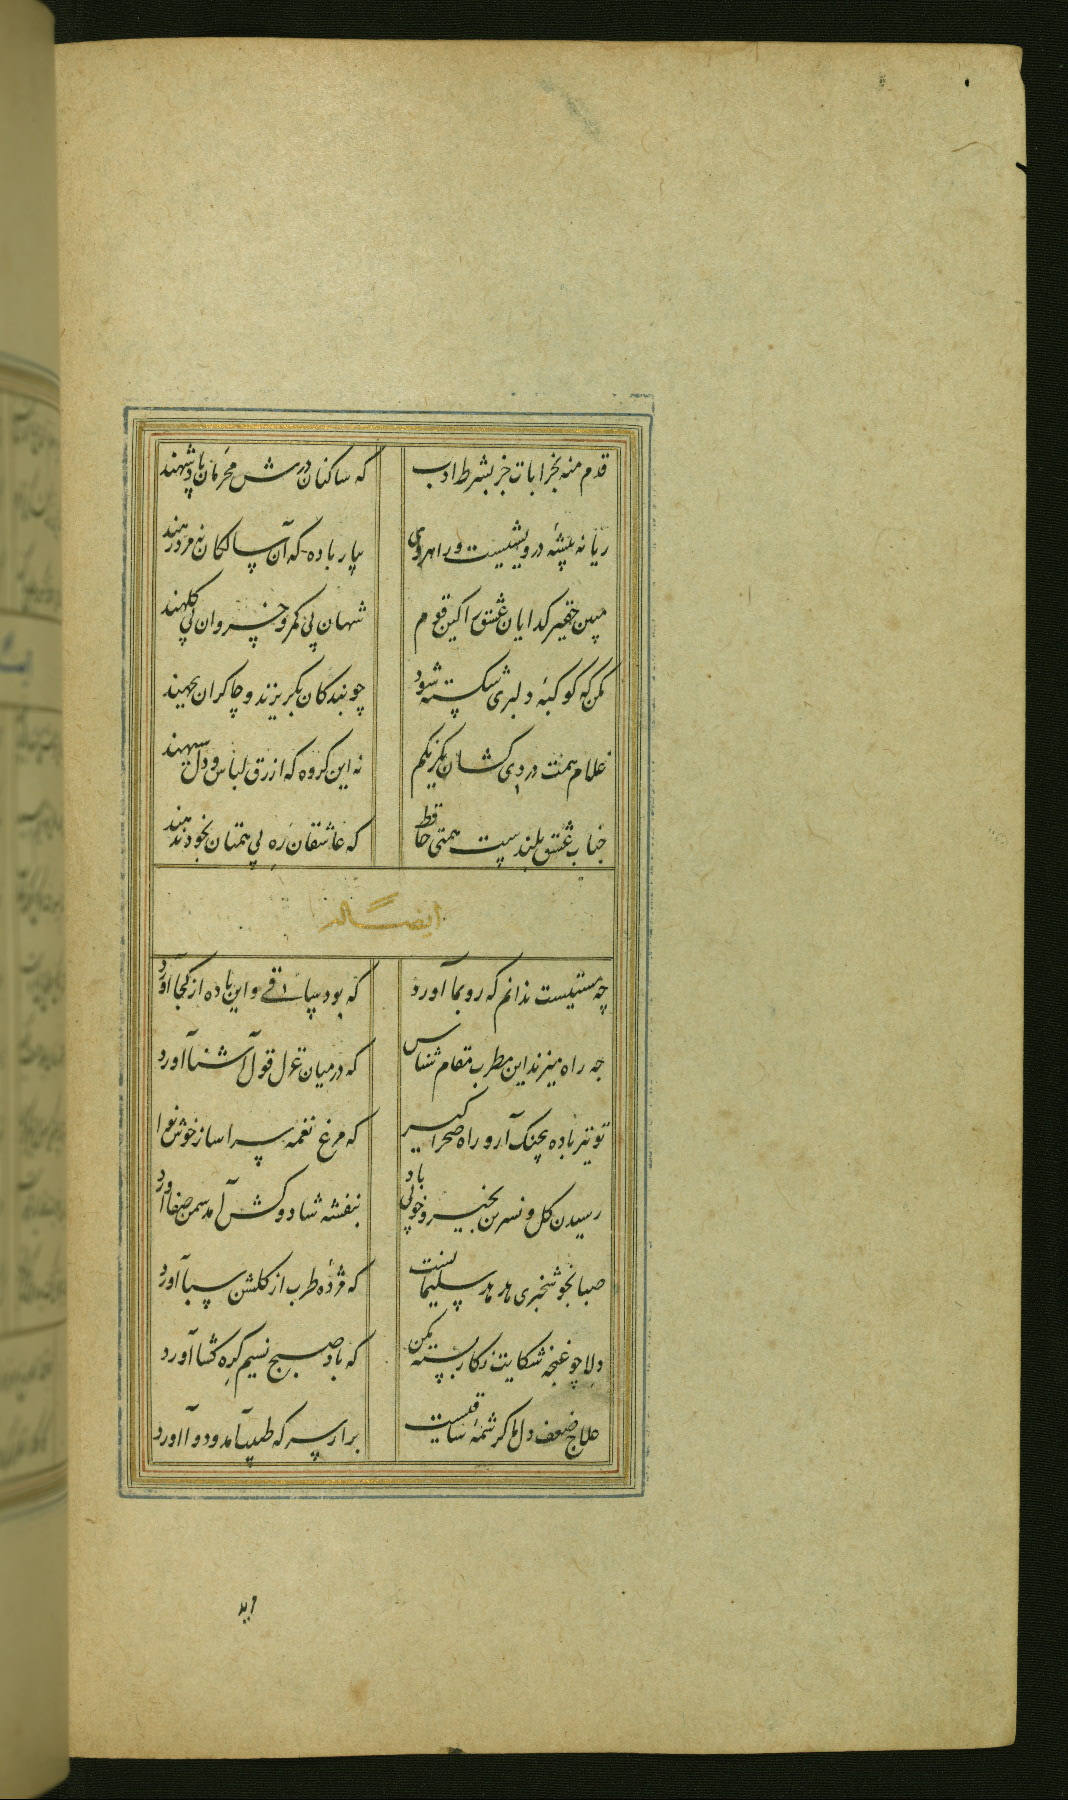 قدم منه بخرابات جز بشرط ادب که ساکنان درش محرمان پادشهند
ریا نه پیشهٔ درویشیست و راهروی بیار باده که آن سالکان نه مرد رهند
مبین حقیر کدایان عشق را کین قوم شهان بی کمر و خسروان بی کلهند
مکن که کوکبهٔ دلبری شکسته شود چو بندکان بکریزند و چاکران بجهند
غلام همت دردی کشان یکرنکم نه این کروه که ازرق لباس و دل سیهند
جناب عشق بلندست همتی حافظ که عاشقان ره بی همتان بخود ندهند
ایضاً له
چه مستیست ندانم که رو بما آورد که بود ساقی و این باده از کجا آورد
چه راه میزند این مطرب مقام شناس که در میان غزل قول آشنا آورد
تو نیز باده بچنک آر و راه صحرا کیر که مرغ نغمه سرا ساز خوش نوا
رسیدن کل و نسرین بخیر و خوبی باد بنفشه شاد و کش آمد سمن صفا آورد
صبا بخوشخبری هدهد سلیمانست که مژدهٔ طرب از کلشن سبا آورد
دلا چو غنچه شکایت ز کار بسته مکن که باد صبح نسیم کره کشا آورد
علاج ضعف دل ما کرشمهٔ ساقیست برآر سر که طبیب آمد و دوا آورد